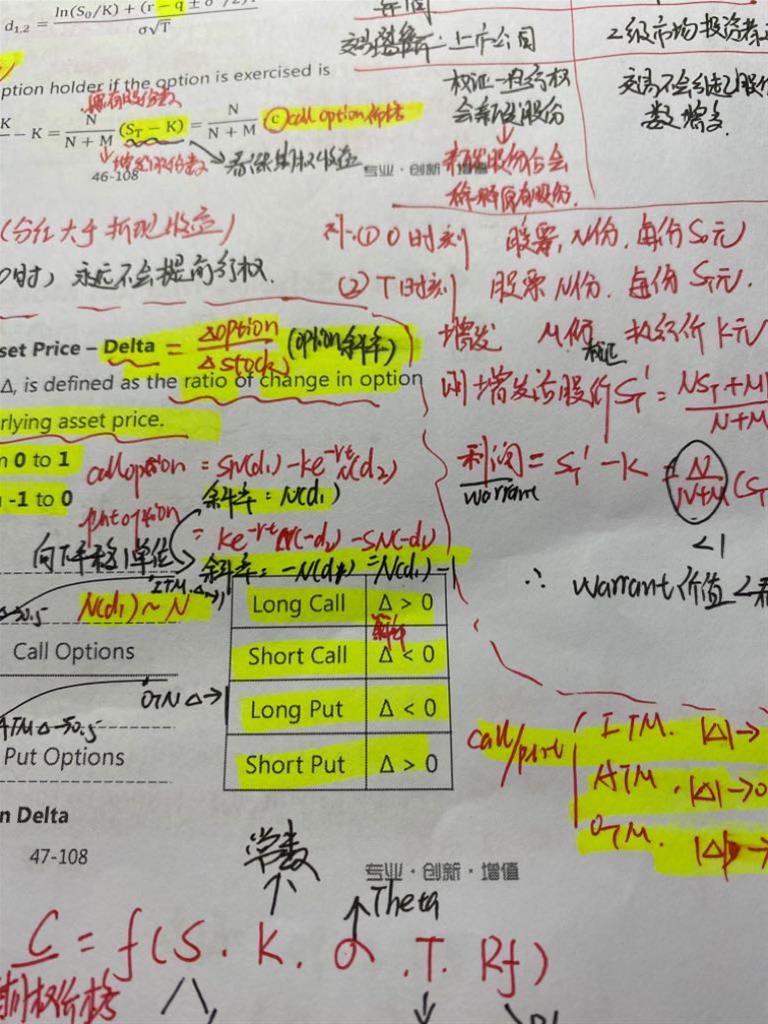 d1,2 = ln(S0/K) + (r − q ±
σ√T
ption holder if the option is exercised is
原有股份数
K
− K = N/(N + M) (ST − K) = N/(N + M) c call option价格
增发股份数
看涨期权收益
46-108
专业·创新·增值
上市公司
2级市场投资者
权证一执行权
会新发股份
交易不会引起股份
数增多.
新发股份会
稀释原有股份.
(分红大于折现收益)
0时) 永远不会提前行权.
(1) 0时刻 股票, N份, 每份S0元
(2) T时刻 股票N份. 每份ST元.
增发 M份 权证 执行价K元
则增发后股价ST' = NST + M
N+M
利润 = ST' − K = N/(N+M) (S
warrant
<1
∴ warrant价值<看
set Price – Delta = Δoption/Δstock (option斜率)
Δ, is defined as the ratio of change in option
rlying asset price.
m 0 to 1
-1 to 0
call option = SN(d1) − ke^-rt N(d2)
斜率: N(d1)
put option = ke^-rt N(-d2) − SN(-d1)
向下平移1单位
斜率: −N(-d1) = N(d1) − 1
ITM. Δ→1
N(d1) ~ N
Call Options
OTM Δ→
ATM Δ→0.5
Put Options
Long Call Δ > 0
Short Call Δ < 0
Long Put Δ < 0
Short Put Δ > 0
call/put
ITM. |Δ|→
ATM. |Δ|→0
OTM. |Δ|→
n Delta
47-108
专业·创新·增值
常数
Theta
C = f(S. K. σ. T. Rf)
期权价格